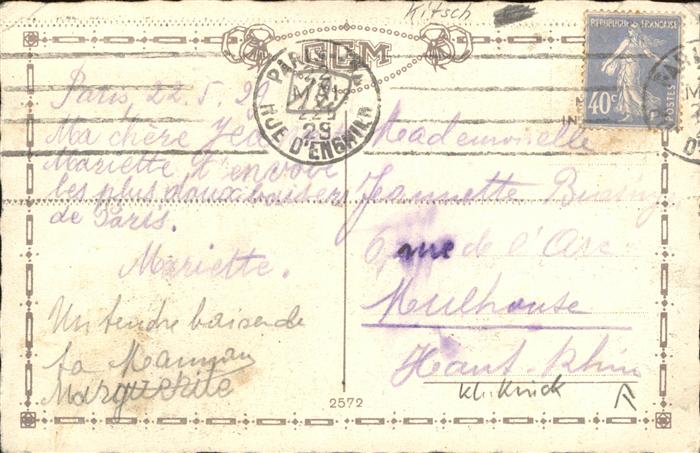 Kitsch
GGM
REPUBLIQUE FRANÇAISE
40c
POSTES
PARIS
22
MAI
29
RUE D'ENGHIEN
Paris, 22.5.29
Ma chère
Mariette t'envoie
les plus doux baisers
de Paris.
Mariette.
Un tendre baiser de
ta Maman
Marguerite
Mademoiselle
Jeannette
6, rue de l'Arc
Mulhouse
Haut-Rhin
2572